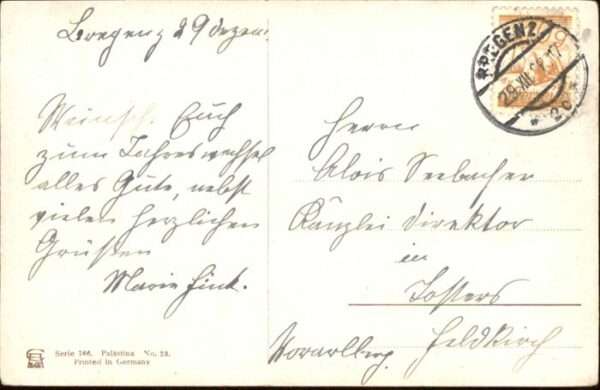 Bregenz 29 Dezem.
Wünsche Euch
zum Jahreswechsel
alles Gute, nebst
vielen herzlichen
Grüßen
Marie Fink.
BREGENZ
29.XII.
* 2c *
Herrn
Alois Seebacher
Kanzlei direktor
in
Tosters
Feldkirch
Vorarlberg.
Serie 766. Palästina No. 23.
Printed in Germany